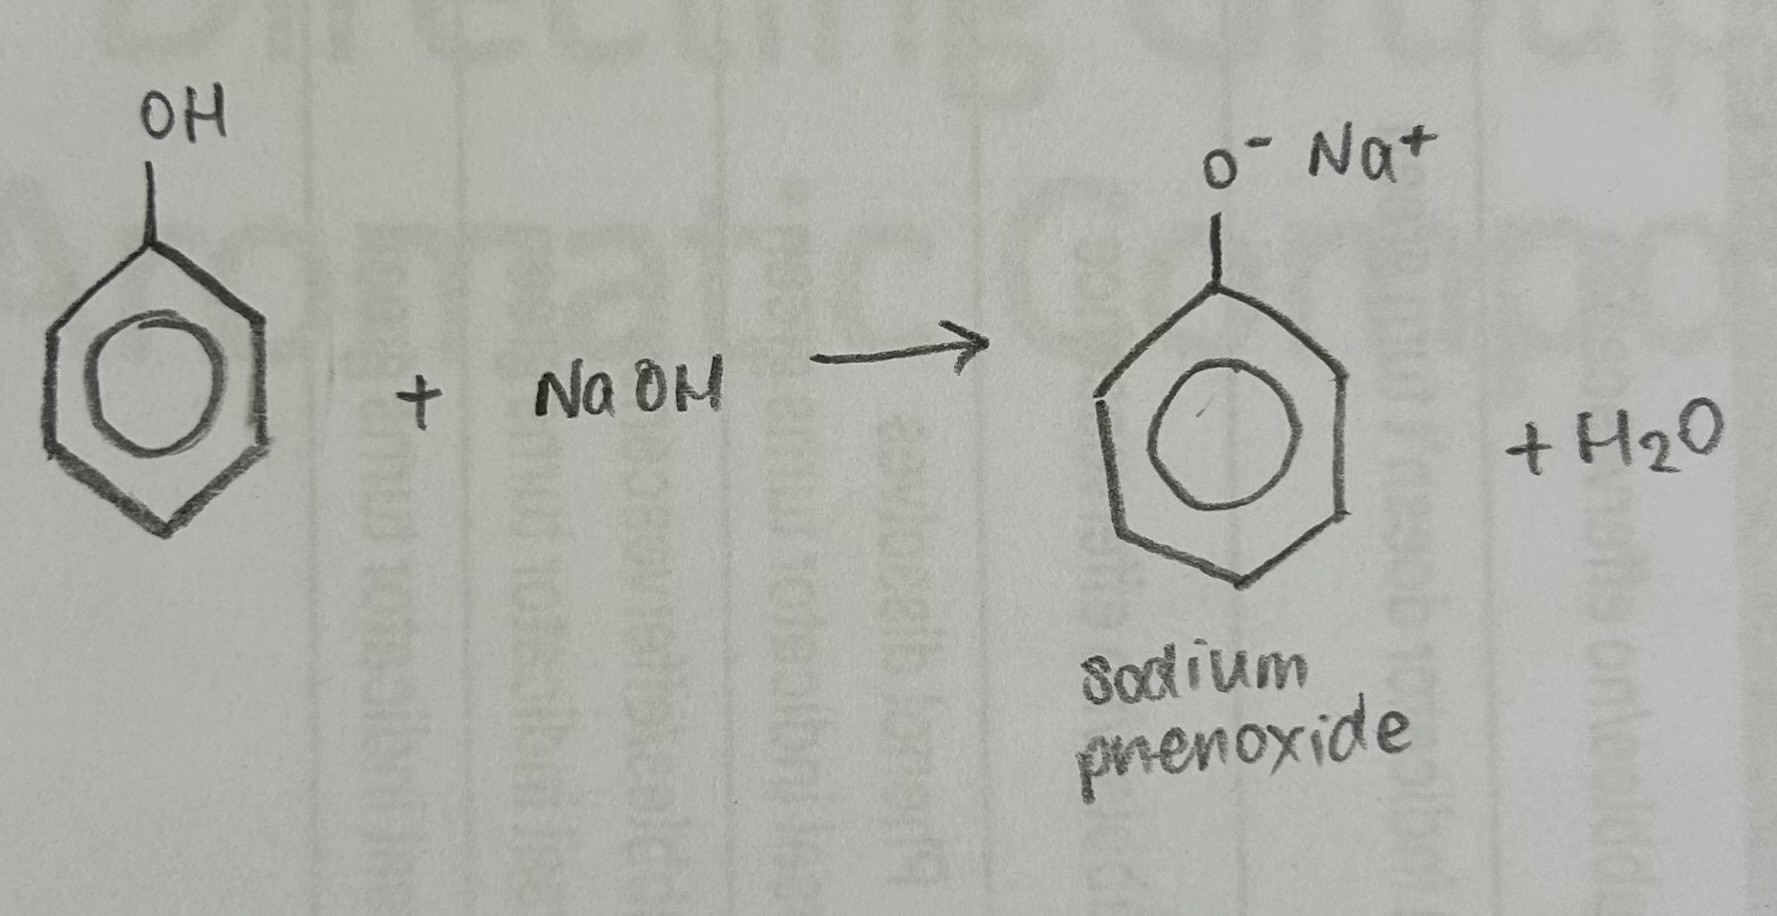 OH
+ NaOH
O⁻ Na⁺
+ H₂O
sodium
phenoxide